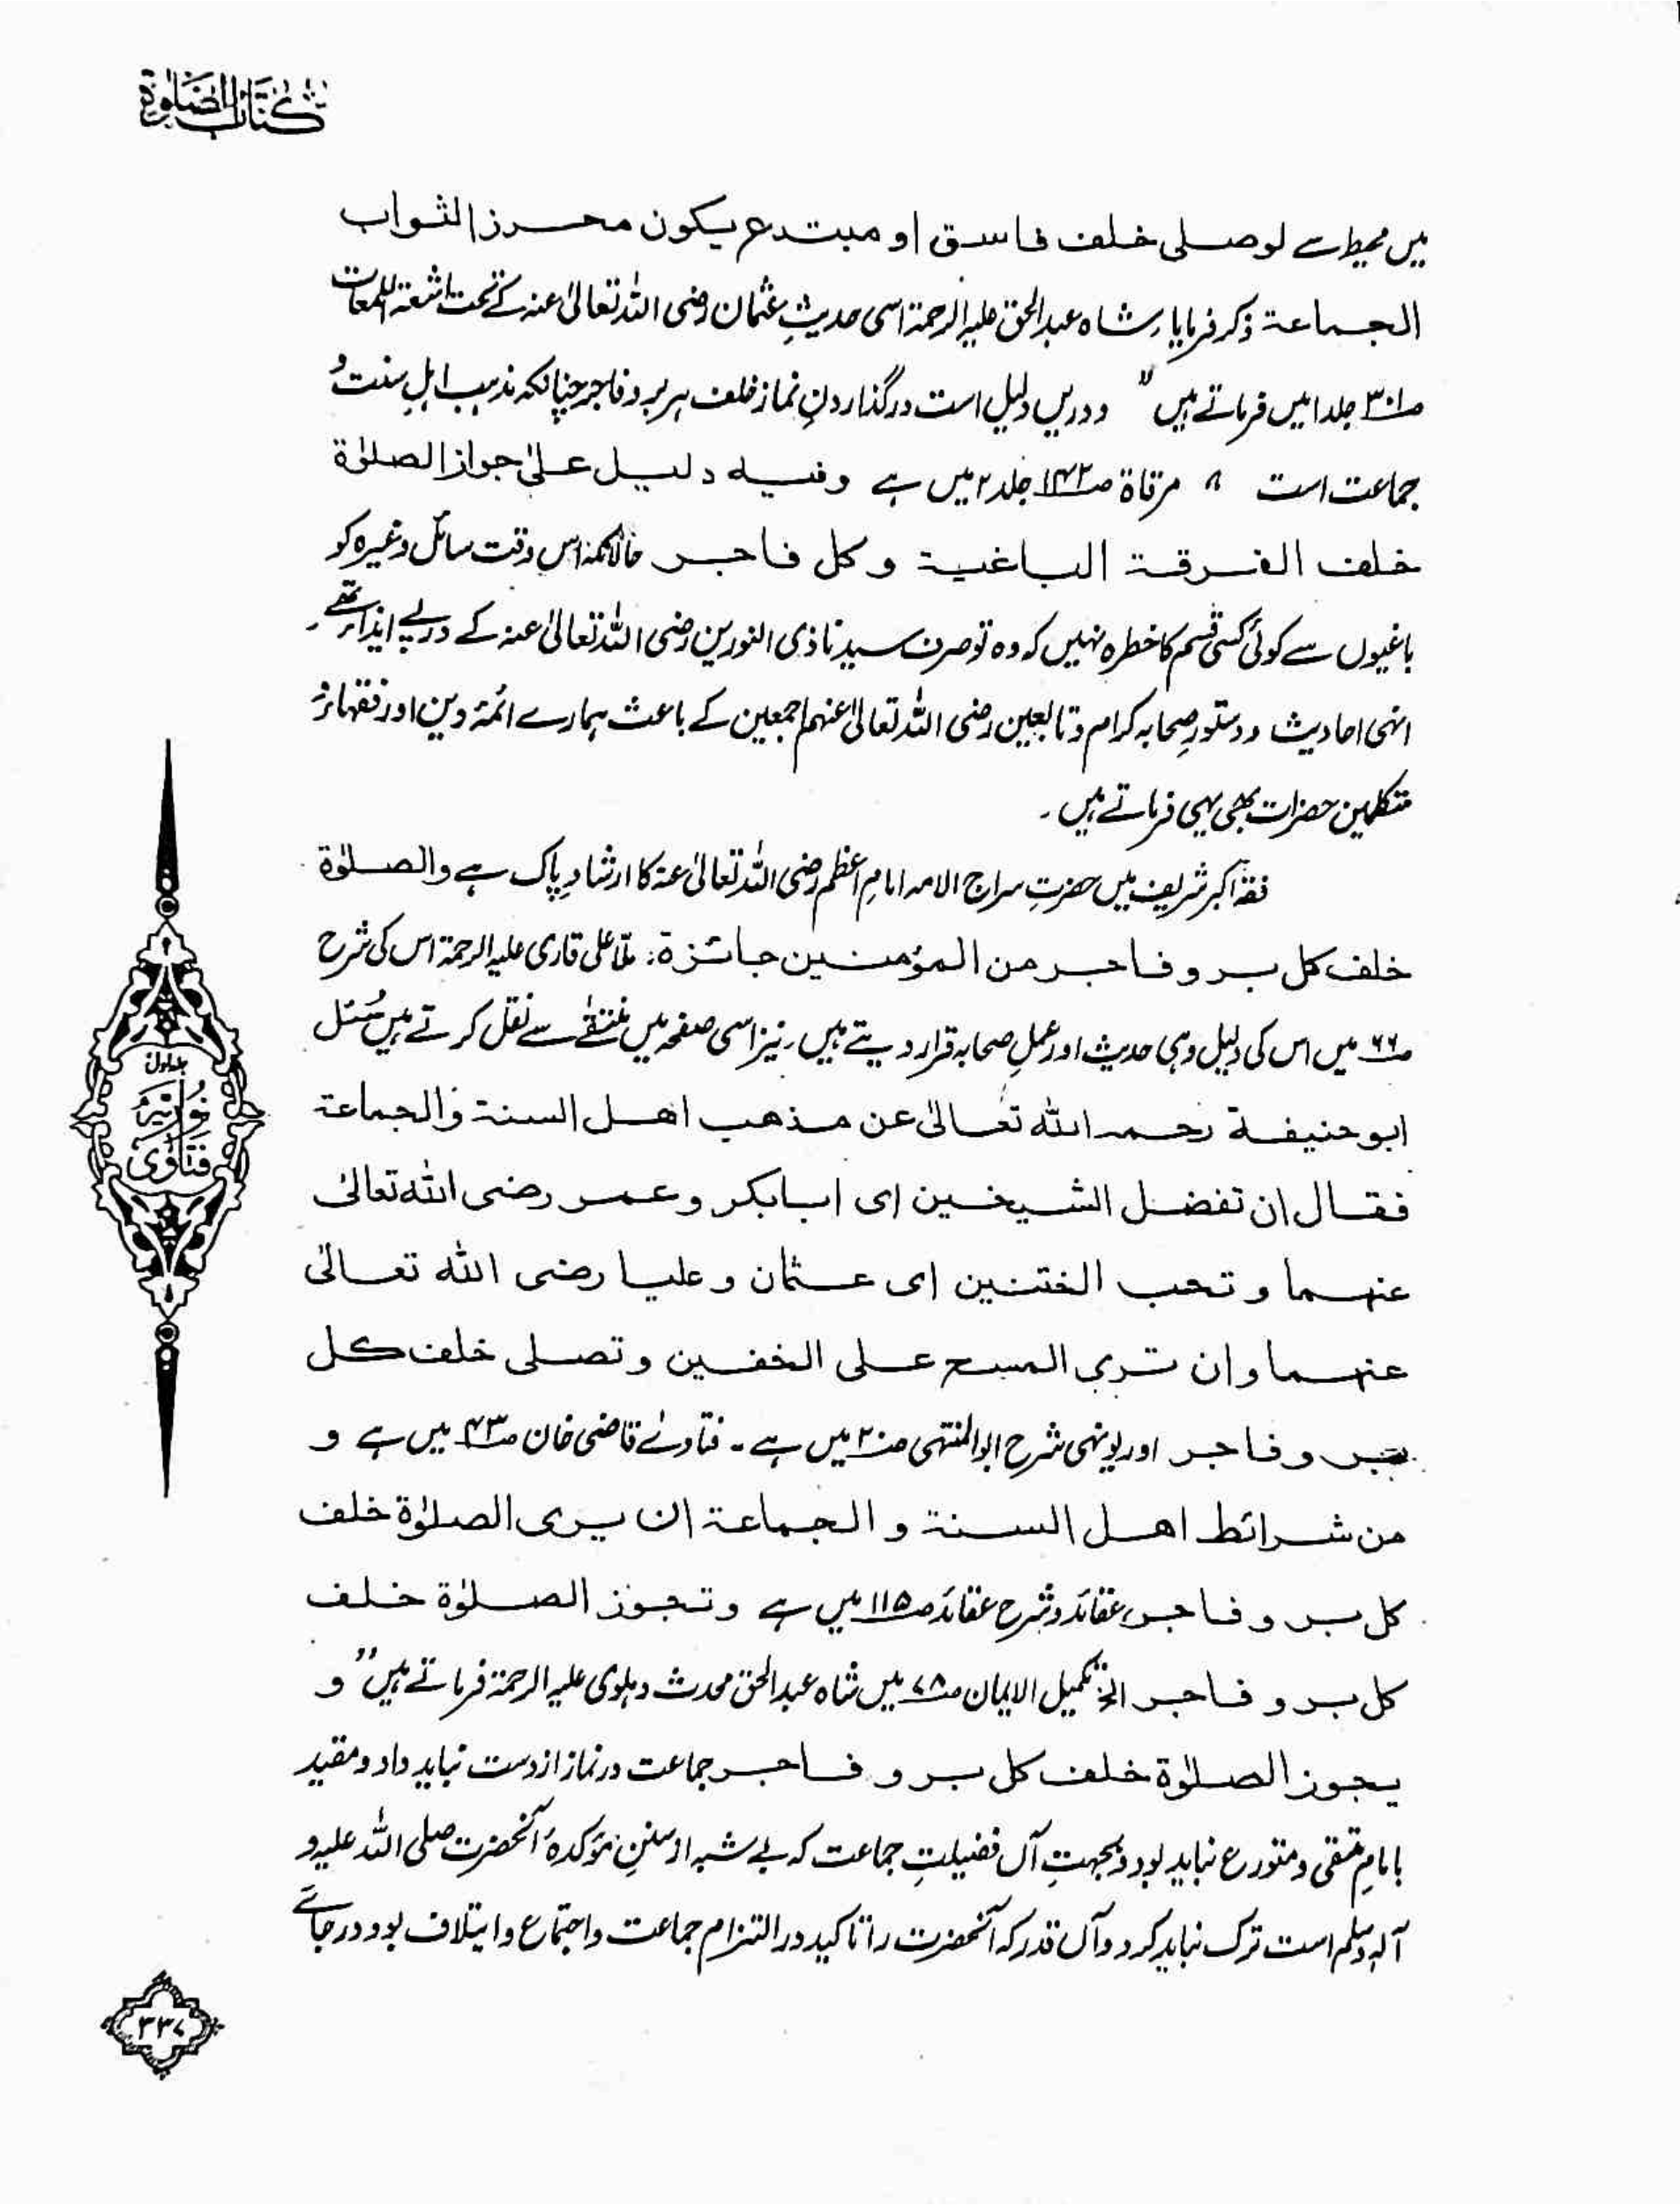 کتاب الصلوٰۃ
میں محیط سے لوصلی خلف فاسق او مبتدع یکون محرز الثواب
الجماعۃ ذکر فرمایا، شاہ عبدالحق علیہ الرحمۃ اسی حدیثِ عثمان رضی اللہ تعالیٰ عنہ کے تحت اشعۃ اللمعات
صـ۳۰۱ جلد ا میں فرماتے ہیں " و دریں دلیل است در گذاردنِ نماز خلف ہر بر و فاجر چنانکہ مذہب اہلِ سنت و
جماعت است " مرقاۃ صـ۱۴۲ جلد ۲ میں ہے وفیہ دلیل علیٰ جواز الصلوٰۃ
خلف الفرقۃ الباغیۃ و کل فاجر حالانکہ اس وقت سائل وغیرہ کو
باغیوں سے کوئی کسی قسم کا خطرہ نہیں کہ وہ تو صرف سیدنا ذی النورین رضی اللہ تعالیٰ عنہ کے درپے ایذاء تھے۔
انہی احادیث و دستورِ صحابہ کرام و تابعین رضی اللہ تعالیٰ عنہم اجمعین کے باعث ہمارے ائمۂ دین اور فقہاءِ
متکلمین حضرات بھی یہی فرماتے ہیں۔
فقہ اکبر شریف میں حضرتِ سراج الامہ امامِ اعظم رضی اللہ تعالیٰ عنہ کا ارشادِ پاک ہے والصلوٰۃ
خلف کل بر و فاجر من المؤمنین جائزۃ، ملا علی قاری علیہ الرحمۃ اس کی شرح
صـ۶۶ میں اس کی دلیل وہی حدیث اور عملِ صحابہ قرار دیتے ہیں، نیز اسی صفحہ میں منتقٰے سے نقل کرتے ہیں سُئل
ابو حنیفۃ رحمہ اللہ تعالیٰ عن مذھب اھل السنۃ والجماعۃ
فقال ان تفضل الشیخین ای ابابکر و عمر رضی اللہ تعالیٰ
عنہما و تحب الختنین ای عثمان و علیا رضی اللہ تعالیٰ
عنہما و ان تری المسح علی الخفین و تصلی خلف کل
بر و فاجر اور یونہی شرح ابوالمنتہی صـ۲۰ میں ہے۔ فتاوےٰ قاضی خان صـ۴۳ میں ہے و
من شرائط اھل السنۃ و الجماعۃ ان یری الصلوٰۃ خلف
کل بر و فاجر، عقائد و شرح عقائد صـ۱۱۵ میں ہے و تجوز الصلوٰۃ خلف
کل بر و فاجر الخ تکمیل الایمان صـ۷۸ میں شاہ عبدالحق محدث دہلوی علیہ الرحمۃ فرماتے ہیں " و
یجوز الصلوٰۃ خلف کل بر و فاجر جماعت در نماز از دست نباید داد و مقید
بامامِ متقی و متورع نباید بود و بجہتِ آں فضیلتِ جماعت کہ بے شبہ از سننِ مؤکدۂ آنحضرت صلی اللہ علیہ و
آلہٖ وسلم است ترک نباید کرد و آں قدر کہ آنحضرت را تاکید در التزامِ جماعت و اجتماع و ایتلاف بود در جائے
جلد اول
نُورِیَّہ
فَتَاوٰی
۳۳۷